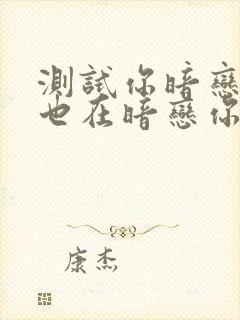 測試你暗戀
也在暗戀你
康杰